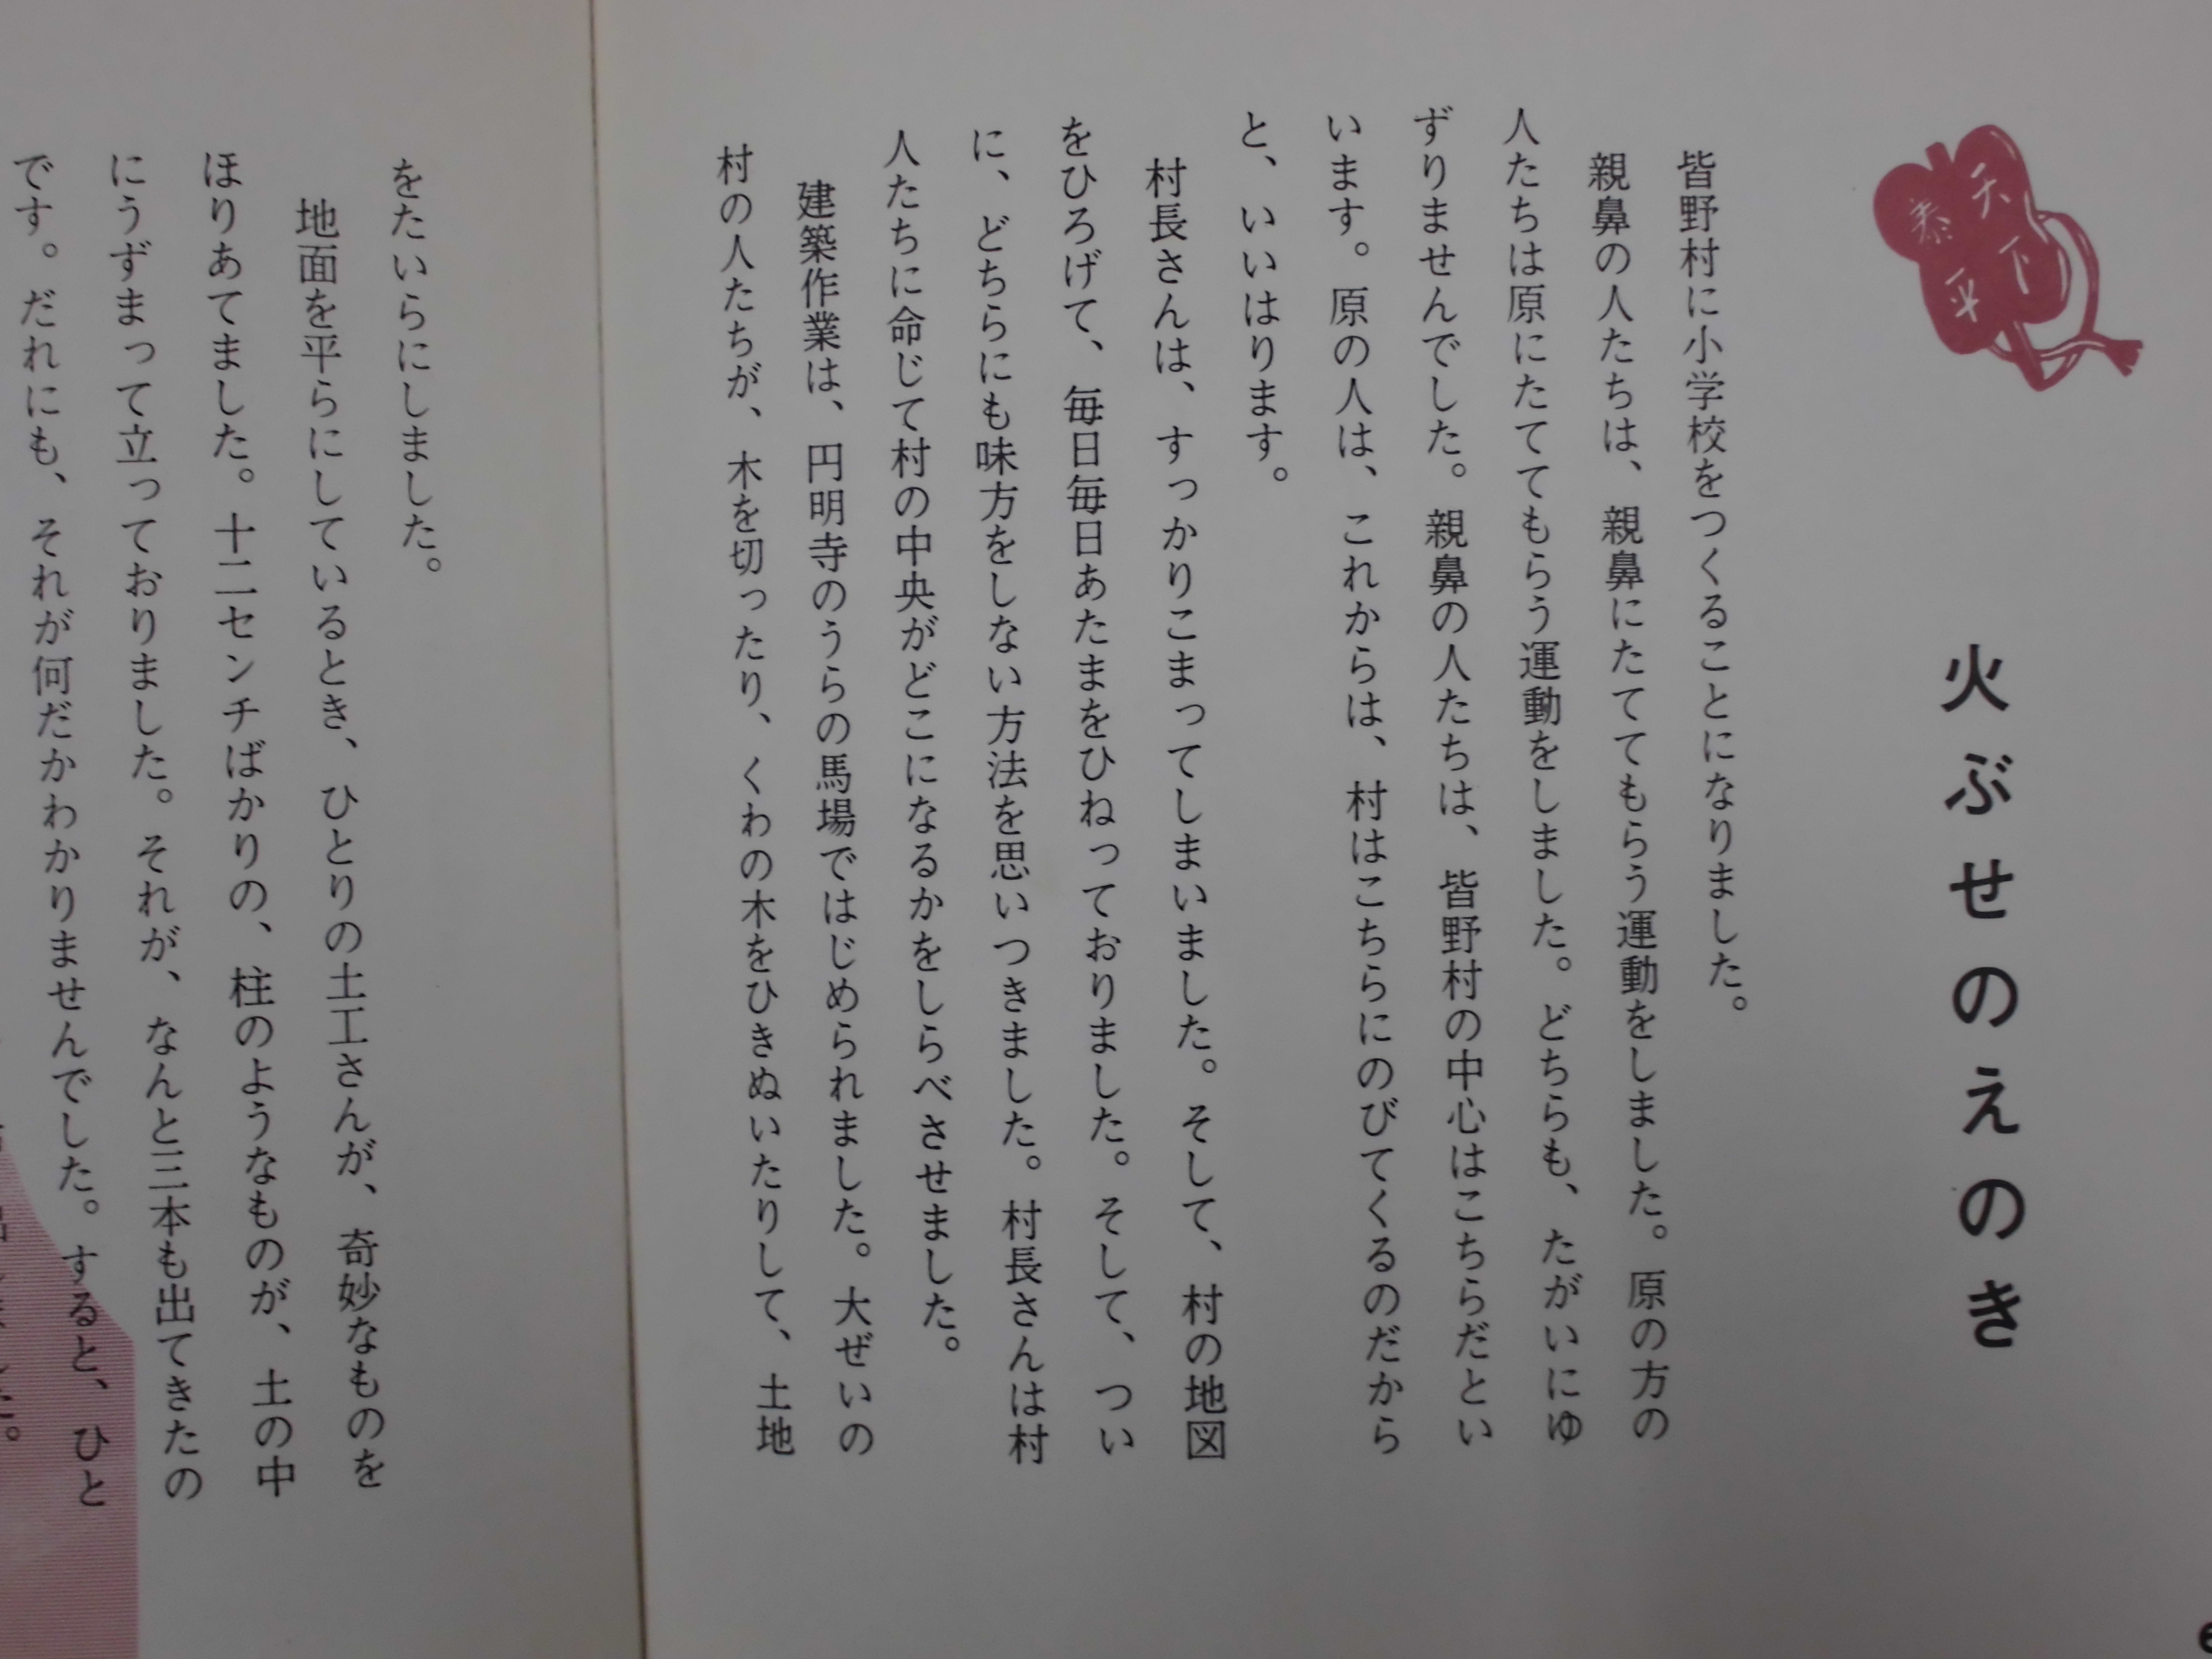 天下
泰平
火ぶせのえのき
皆野村に小学校をつくることになりました。
親鼻の人たちは、親鼻にたててもらう運動をしました。原の方の
人たちは原にたててもらう運動をしました。どちらも、たがいにゆ
ずりませんでした。親鼻の人たちは、皆野村の中心はこちらだとい
います。原の人は、これからは、村はこちらにのびてくるのだから
と、いいはります。
村長さんは、すっかりこまってしまいました。そして、村の地図
をひろげて、毎日毎日あたまをひねっておりました。そして、つい
に、どちらにも味方をしない方法を思いつきました。村長さんは村
人たちに命じて村の中央がどこになるかをしらべさせました。
建築作業は、円明寺のうらの馬場ではじめられました。大ぜいの
村の人たちが、木を切ったり、くわの木をひきぬいたりして、土地
をたいらにしました。
地面を平らにしているとき、ひとりの土工さんが、奇妙なものを
ほりあてました。十二センチばかりの、柱のようなものが、土の中
にうずまって立っておりました。それが、なんと三本も出てきたの
です。だれにも、それが何だかわかりませんでした。すると、ひと